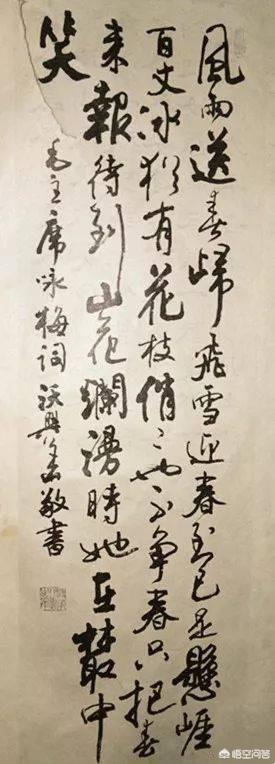 風雨送春歸飛雪迎春到已是懸崖
百丈冰犹有花枝俏〻也不争春只把春
来報待到山花爛漫時她在叢中
笑
毛主席咏梅词沃興華敬書
悟空问答